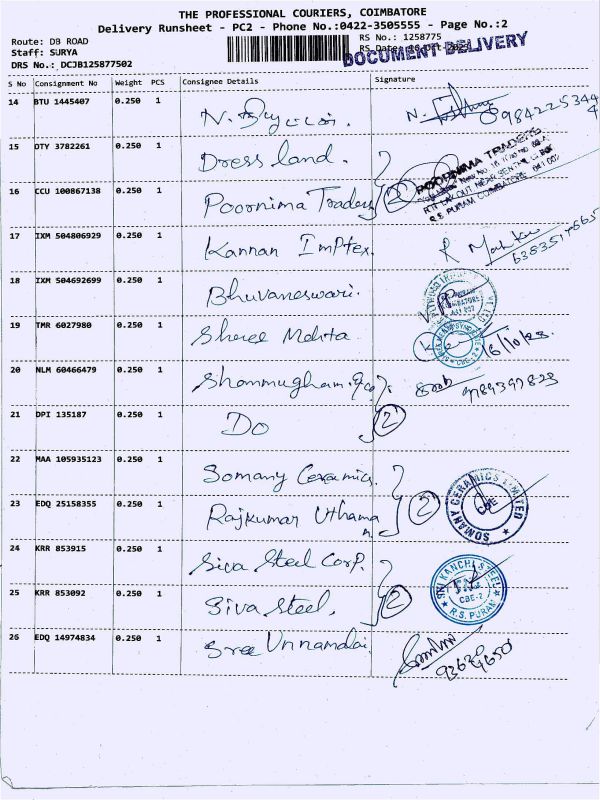 THE PROFESSIONAL COURIERS, COIMBATORE
Delivery Runsheet - PC2 - Phone No.:0422-3505555 - Page No.:2
Route: DB ROAD
RS No.: 1258775
Staff: SURYA
RS Date:
DOCUMENT DELIVERY
DRS No.: DCJB125877502
S No Consignment No Weight PCS Consignee Details Signature
14 BTU 1445407 0.250 1 N.
15 OTY 3782261 0.250 1 Dress land.
16 CCU 100867138 0.250 1 Poornima Traders 2 POORNIMA TRADERS
R.S. PURAM COIMBATORE
17 IXM 504806929 0.250 1 Kannan Imptex. R
18 IXM 504692699 0.250 1 Bhuvaneswari.
19 TMR 6027980 0.250 1 Shree Mehta CBE-2 16/10/23.
20 NLM 60466479 0.250 1 Shanmugham
21 DPI 135187 0.250 1 Do 2
22 MAA 105935123 0.250 1 Somany Ceramics.
23 EDQ 25158355 0.250 1 Rajkumar Uthaman 2 SOMANY CERAMICS LIMITED CBE
24 KRR 853915 0.250 1 Siva Steel Corp.
25 KRR 853092 0.250 1 Siva Steel. 2 SRI KANCHI STEEL CBE-2 R.S. PURAM
26 EDQ 14974834 0.250 1 Sree Unnamalai